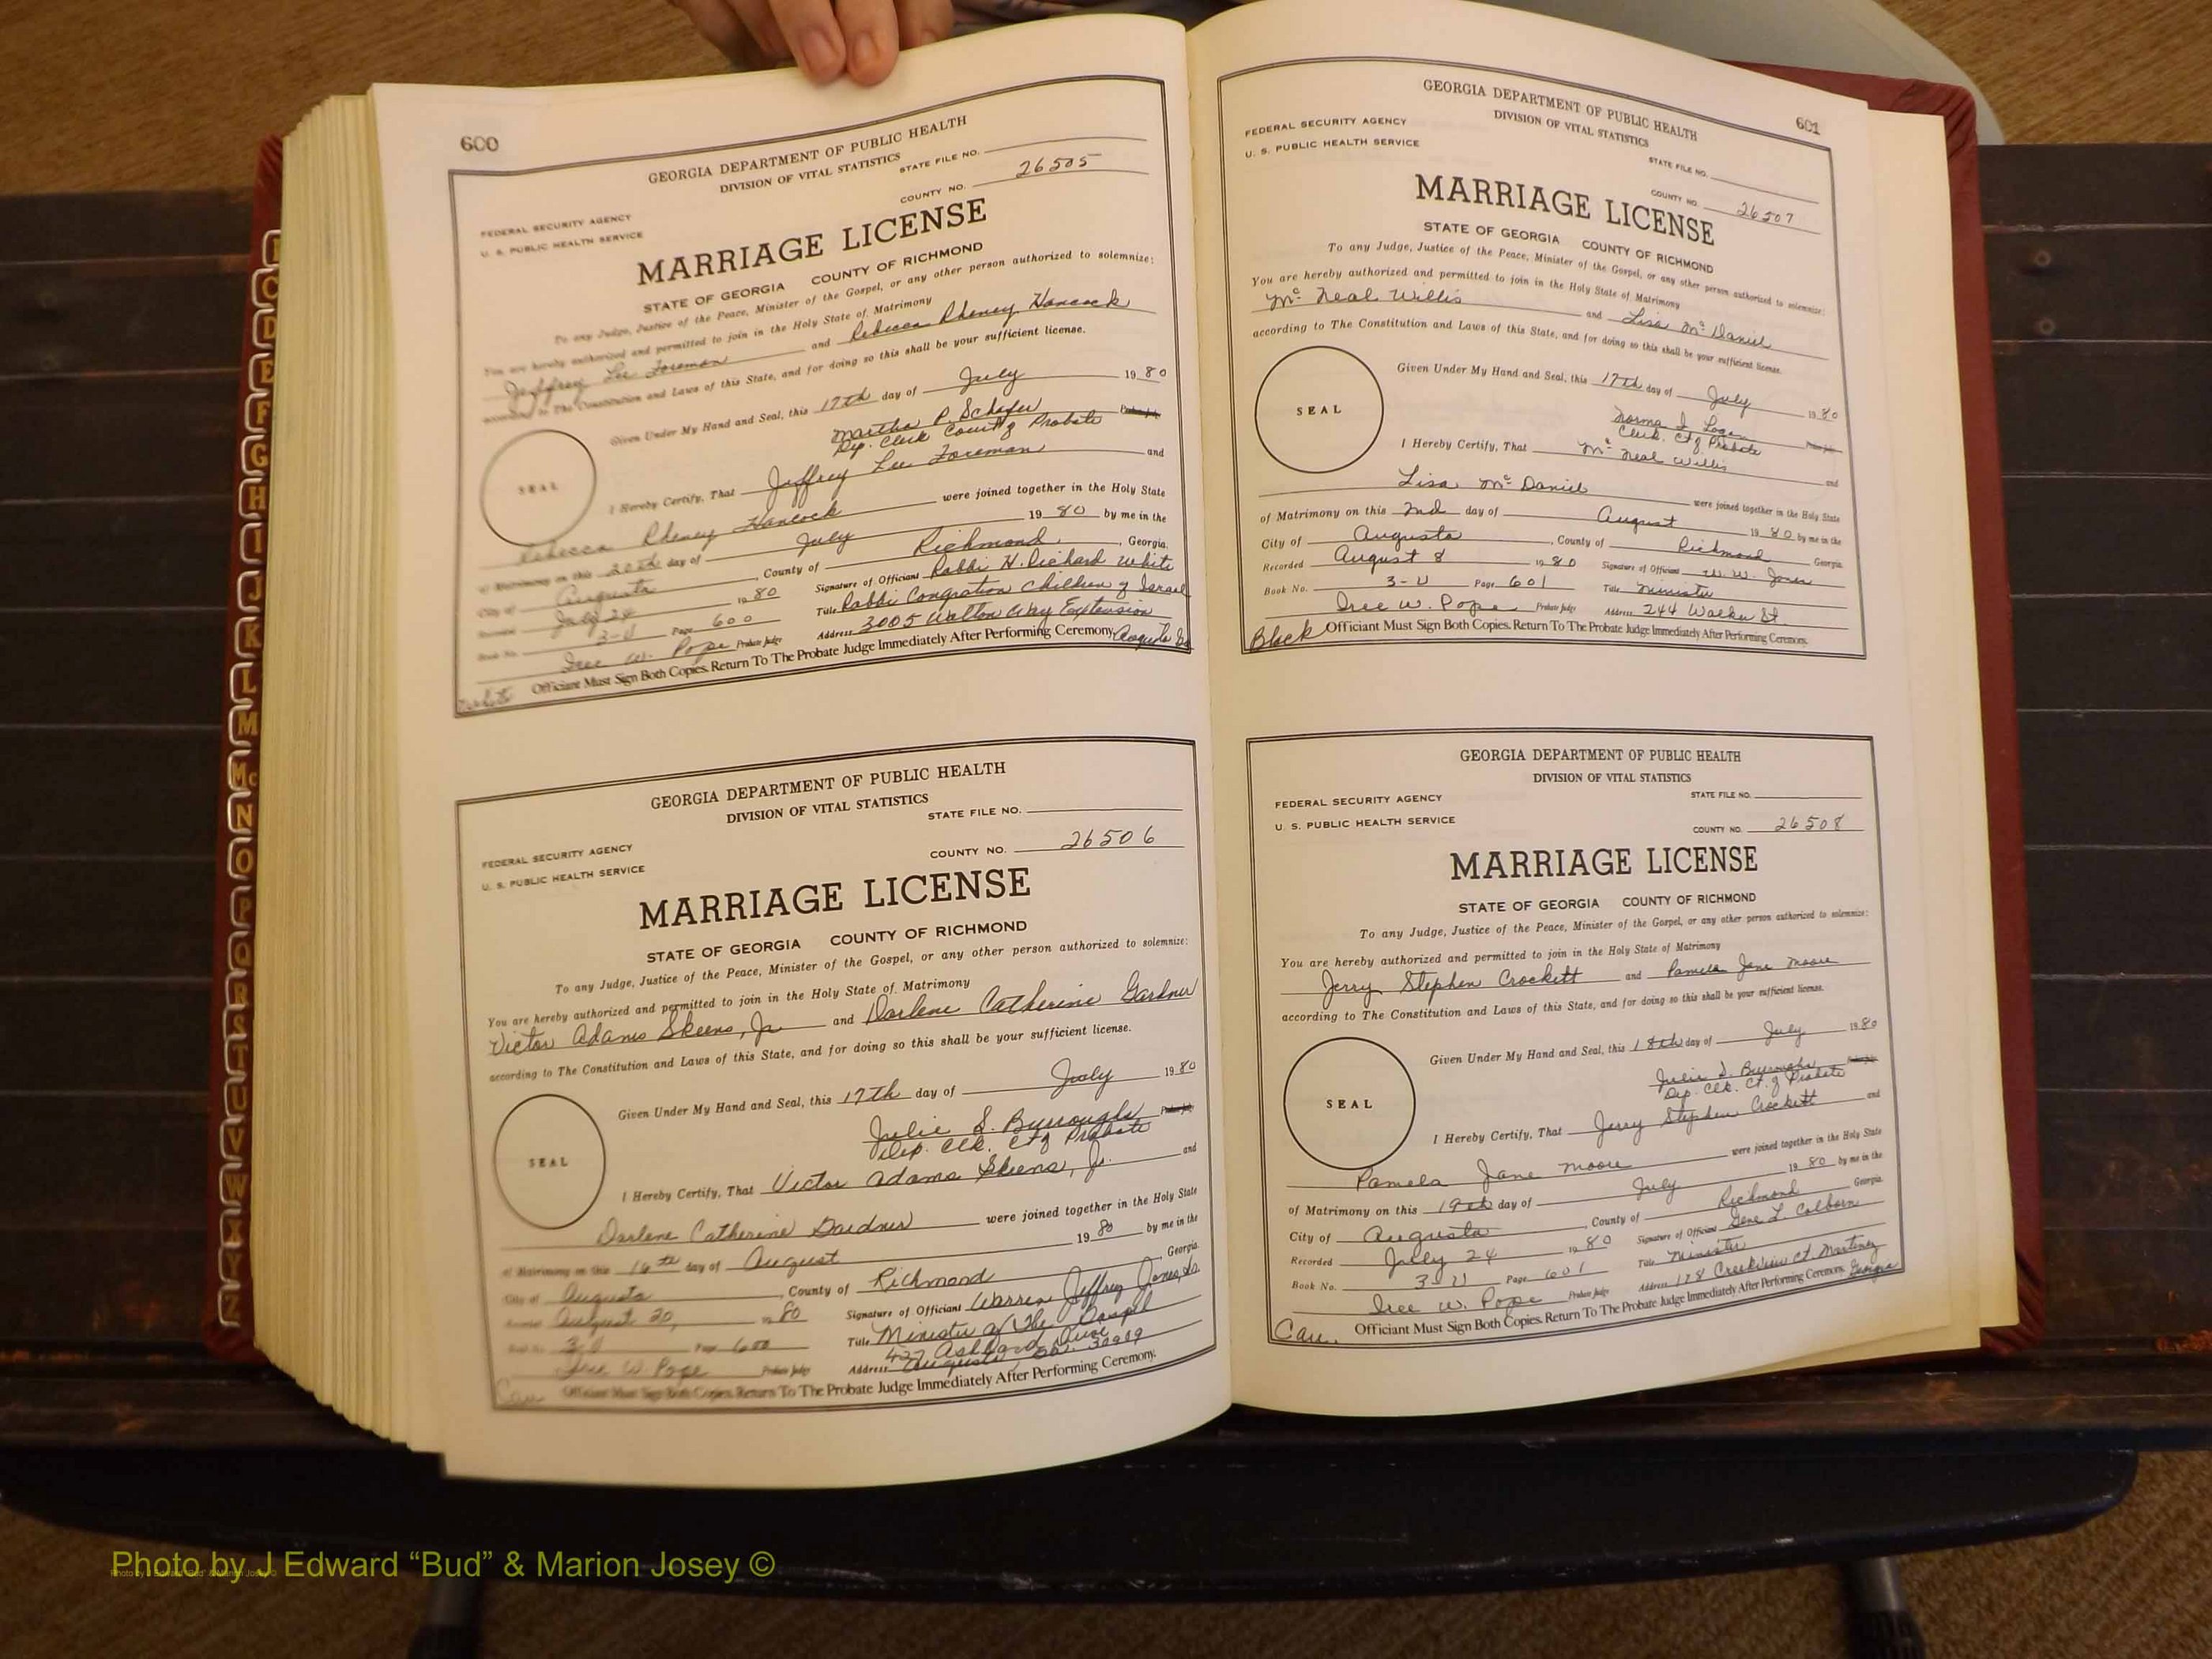 600
GEORGIA DEPARTMENT OF PUBLIC HEALTH
DIVISION OF VITAL STATISTICS
STATE FILE NO.
COUNTY NO. 26505
FEDERAL SECURITY AGENCY
U. S. PUBLIC HEALTH SERVICE
MARRIAGE LICENSE
STATE OF GEORGIA COUNTY OF RICHMOND
To any Judge, Justice of the Peace, Minister of the Gospel, or any other person authorized to solemnize:
You are hereby authorized and permitted to join in the Holy State of Matrimony
Jeffrey Lee Foreman and Rebecca Rheney Hancock
according to The Constitution and Laws of this State, and for doing so this shall be your sufficient license.
Given Under My Hand and Seal, this 17th day of July 1980
Martha P. Schafer Probate Judge
Dep. Clerk Court of Probate
SEAL
I Hereby Certify, That Jeffrey Lee Foreman and
Rebecca Rheney Hancock were joined together in the Holy State
of Matrimony on this 20th day of July 1980 by me in the
City of Augusta, County of Richmond, Georgia.
Recorded July 24 1980 Signature of Officiant Rabbi H. Richard White
Book No. 3-U Page 600 Title Rabbi Congration Children of Israel
Iree W. Pope Probate Judge Address 3005 Walton Way Extension
Augusta Ga
Officiant Must Sign Both Copies. Return To The Probate Judge Immediately After Performing Ceremony.
GEORGIA DEPARTMENT OF PUBLIC HEALTH
DIVISION OF VITAL STATISTICS
STATE FILE NO.
COUNTY NO. 26506
FEDERAL SECURITY AGENCY
U. S. PUBLIC HEALTH SERVICE
MARRIAGE LICENSE
STATE OF GEORGIA COUNTY OF RICHMOND
To any Judge, Justice of the Peace, Minister of the Gospel, or any other person authorized to solemnize:
You are hereby authorized and permitted to join in the Holy State of Matrimony
Victor Adams Skeens, Jr. and Darlene Catherine Gardner
according to The Constitution and Laws of this State, and for doing so this shall be your sufficient license.
Given Under My Hand and Seal, this 17th day of July 1980
Julie S. Burroughs Probate Judge
Dep. Clk. Ct of Probate
SEAL
I Hereby Certify, That Victor Adams Skeens, Jr. and
Darlene Catherine Gardner were joined together in the Holy State
of Matrimony on this 16th day of August 1980 by me in the
City of Augusta, County of Richmond, Georgia.
August 20, 1980 Signature of Officiant Warren Jeffrey Jones, Sr.
3-U Page 600 Title Minister of The Gospel
437 Ashland Drive
Iree W. Pope Probate Judge Address Augusta, Ga. 30909
Cau
Officiant Must Sign Both Copies. Return To The Probate Judge Immediately After Performing Ceremony.
601
GEORGIA DEPARTMENT OF PUBLIC HEALTH
DIVISION OF VITAL STATISTICS
FEDERAL SECURITY AGENCY
U. S. PUBLIC HEALTH SERVICE
STATE FILE NO.
COUNTY NO. 26507
MARRIAGE LICENSE
STATE OF GEORGIA COUNTY OF RICHMOND
To any Judge, Justice of the Peace, Minister of the Gospel, or any other person authorized to solemnize:
You are hereby authorized and permitted to join in the Holy State of Matrimony
Mc Neal Willis and Lisa Mc Daniel
according to The Constitution and Laws of this State, and for doing so this shall be your sufficient license.
Given Under My Hand and Seal, this 17th day of July 1980
Norma I. Logan Probate Judge
Clerk. Ct of Probate
SEAL
I Hereby Certify, That Mc Neal Willis and
Lisa Mc Daniel were joined together in the Holy State
of Matrimony on this 2nd day of August 1980 by me in the
City of Augusta, County of Richmond Georgia.
Recorded August 8 1980 Signature of Officiant W. W. Jones
Book No. 3-U Page 601 Title Minister
Iree W. Pope Probate Judge Address 244 Walker St.
Black Officiant Must Sign Both Copies. Return To The Probate Judge Immediately After Performing Ceremony.
GEORGIA DEPARTMENT OF PUBLIC HEALTH
DIVISION OF VITAL STATISTICS
STATE FILE NO.
FEDERAL SECURITY AGENCY
U. S. PUBLIC HEALTH SERVICE
COUNTY NO. 26508
MARRIAGE LICENSE
STATE OF GEORGIA COUNTY OF RICHMOND
To any Judge, Justice of the Peace, Minister of the Gospel, or any other person authorized to solemnize:
You are hereby authorized and permitted to join in the Holy State of Matrimony
Jerry Stephen Crockett and Pamela Jane Moore
according to The Constitution and Laws of this State, and for doing so this shall be your sufficient license.
Given Under My Hand and Seal, this 18th day of July 1980
Julie S. Burroughs Probate Judge
Dep. Clk. Ct. of Probate
SEAL
I Hereby Certify, That Jerry Stephen Crockett and
Pamela Jane Moore were joined together in the Holy State
of Matrimony on this 19th day of July 1980 by me in the
City of Augusta, County of Richmond Georgia.
Recorded July 24 1980 Signature of Officiant Gene L. Colborn
Book No. 3-U Page 601 Title Minister
Iree W. Pope Probate Judge Address 178 Creekview Ct. Martinez
Georgia
Cau. Officiant Must Sign Both Copies. Return To The Probate Judge Immediately After Performing Ceremony.
C
D
E
F
G
H
I
J
K
L
M
Mc
N
O
P
Q
R
S
T
U
V
W
X
Y
Z
Photo by J Edward “Bud” & Marion Josey ©
Photo by J Edward “Bud” & Marion Josey ©